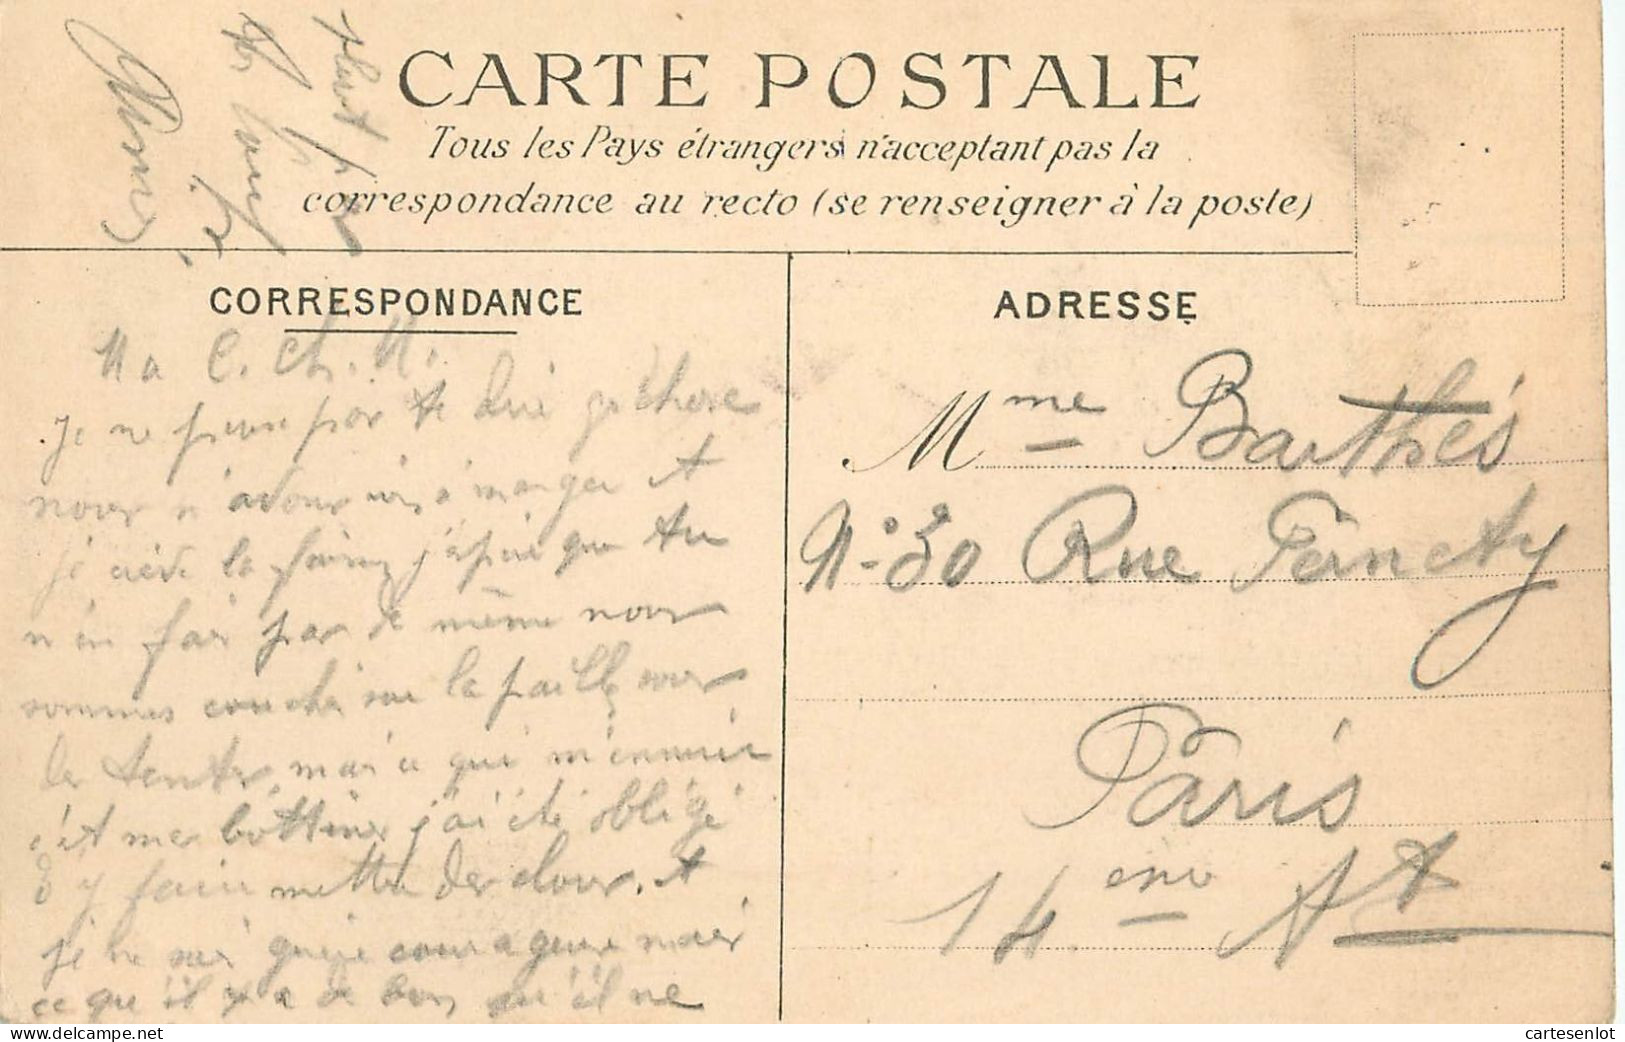 CARTE POSTALE
Tous les Pays étrangers n'acceptant pas la
correspondance au recto (se renseigner à la poste)
CORRESPONDANCE
ADRESSE
Ma C. Ch. M.
je ne te
nous n'avons rien à manger et
je crève la que tu
n'en fais pas de même nous
sommes couché sur la paille sous
les tentes, mais ce qui m'ennuie
c'et mes bottines j'ai été obligé
d'y faire mettre des clous, et
je ne sui guère courageuse mais
ce qu'il y a de bon, qu'il ne
pleut pas
Mme Barthés
N° 30 Rue Pernety
Paris
14 eme At
cartesenlot